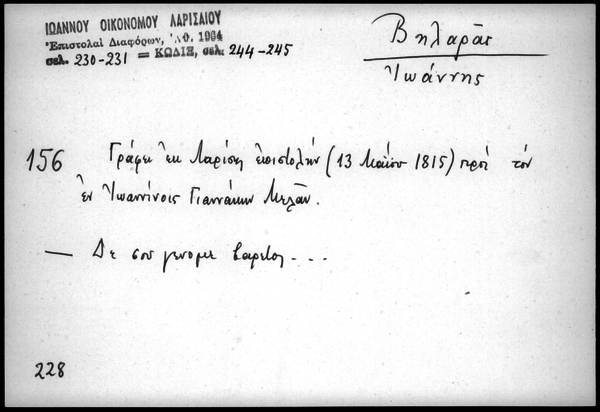 ΙΩΑΝΝΟΥ ΟΙΚΟΝΟΜΟΥ ΛΑΡΙΣΑΙΟΥ
Ἐπιστολαὶ Διαφόρων, Ἀθ. 1964
σελ. 230-231 = ΚΩΔΙΞ, σελ. 244-245
Βηλαρᾶς
Ἰωάννης
156 Γράφει ἐκ Λαρίσης ἐπιστολήν (13 Μαΐου 1815) πρὸς τὸν
ἐν Ἰωαννίνοις Γιαννάκην Μελᾶν.
— Δε σου γενομε βαρετος...
228